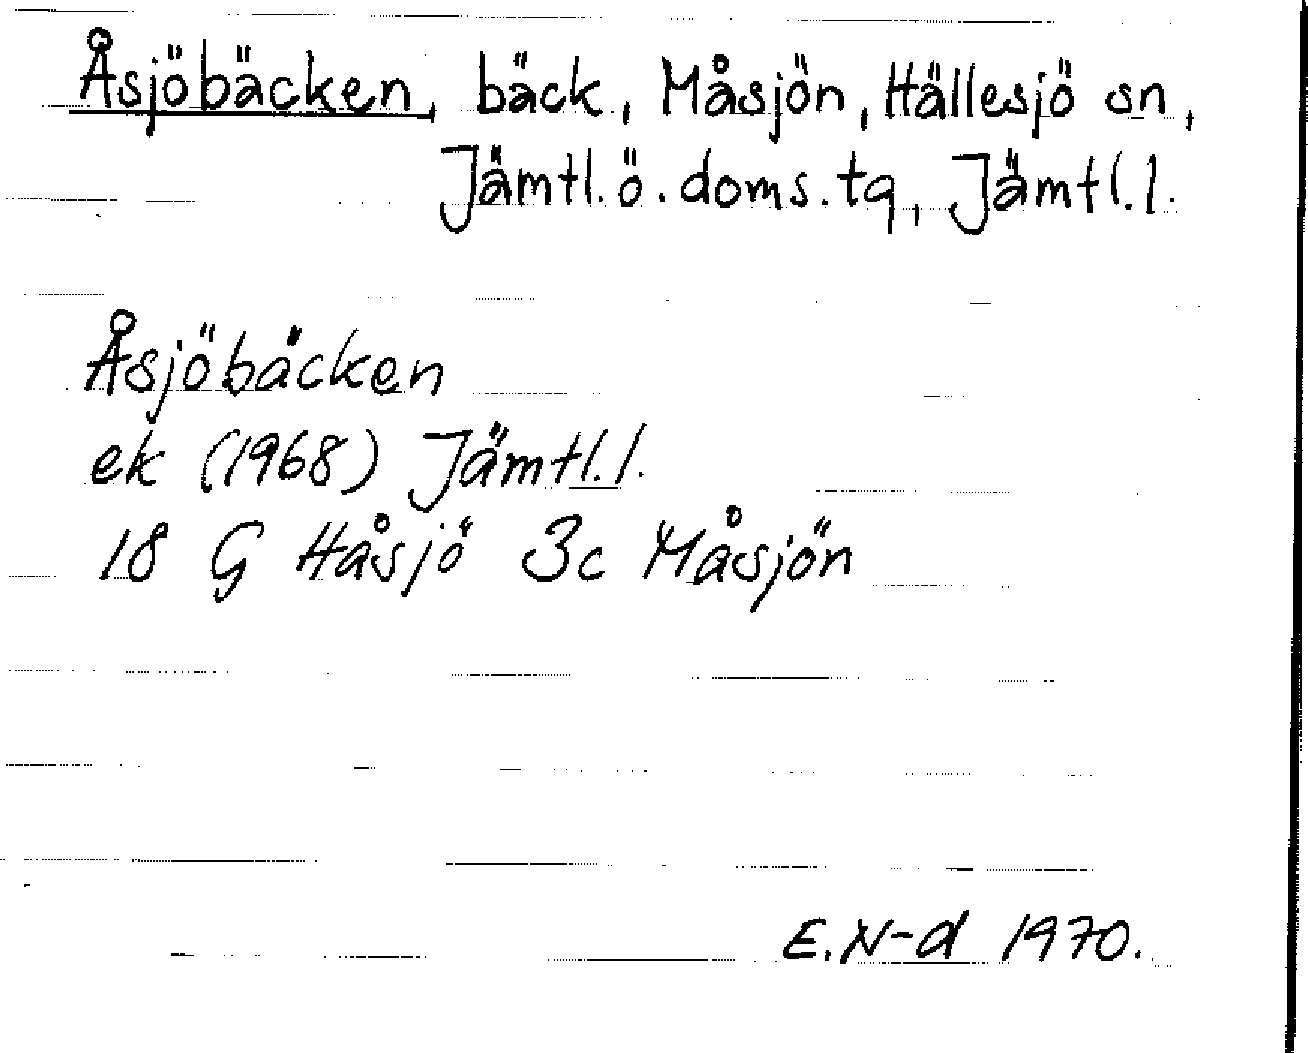 Åsjöbäcken, bäck, Måsjön, Hällesjö sn,
Jämtl. ö. doms. tg, Jämtl. l.
Åsjöbäcken
ek (1968) Jämtl. l.
18 G Håsjö 3c Måsjön
E. N-d 1970.